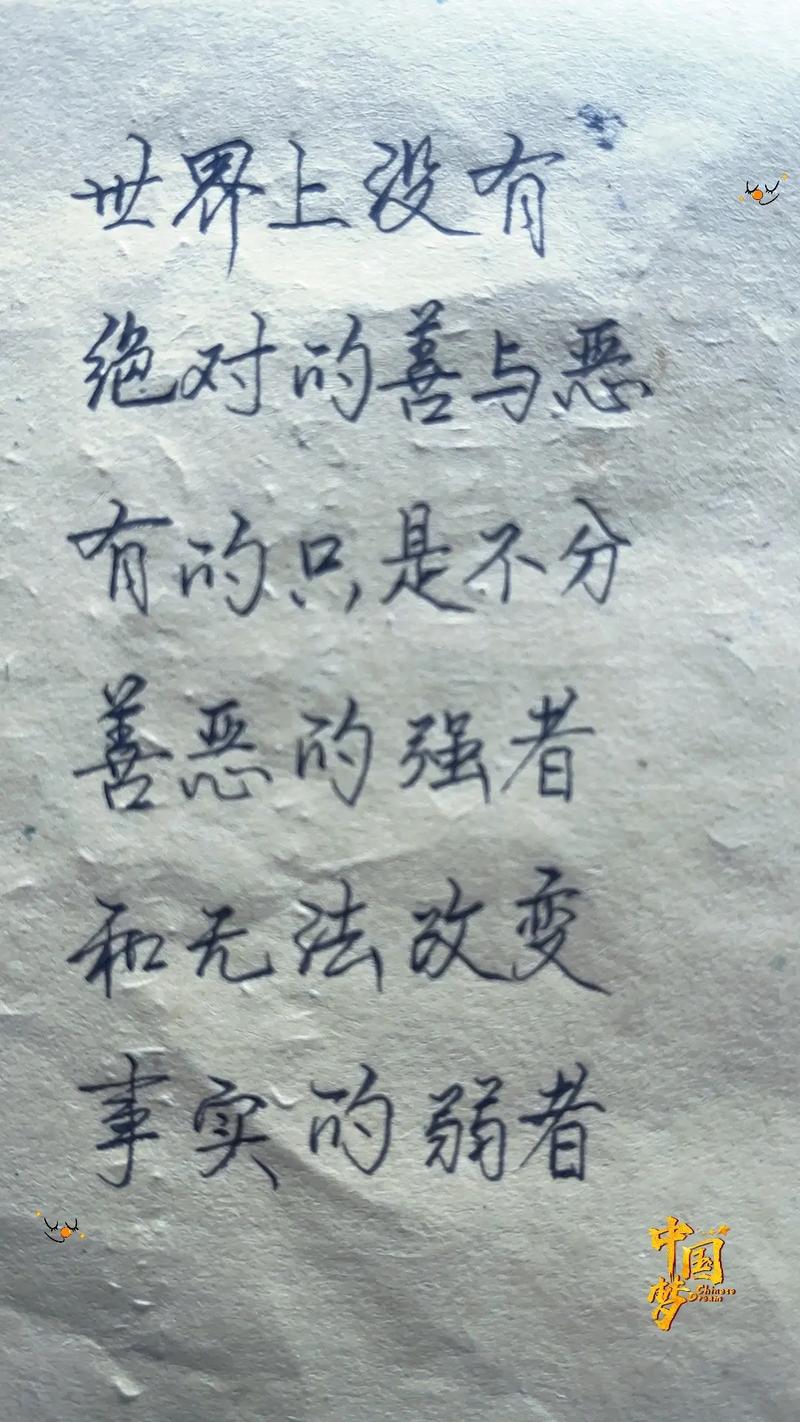 世界上没有
绝对的善与恶
有的只是不分
善恶的强者
和无法改变
事实的弱者
中国梦
Chinese
Dream